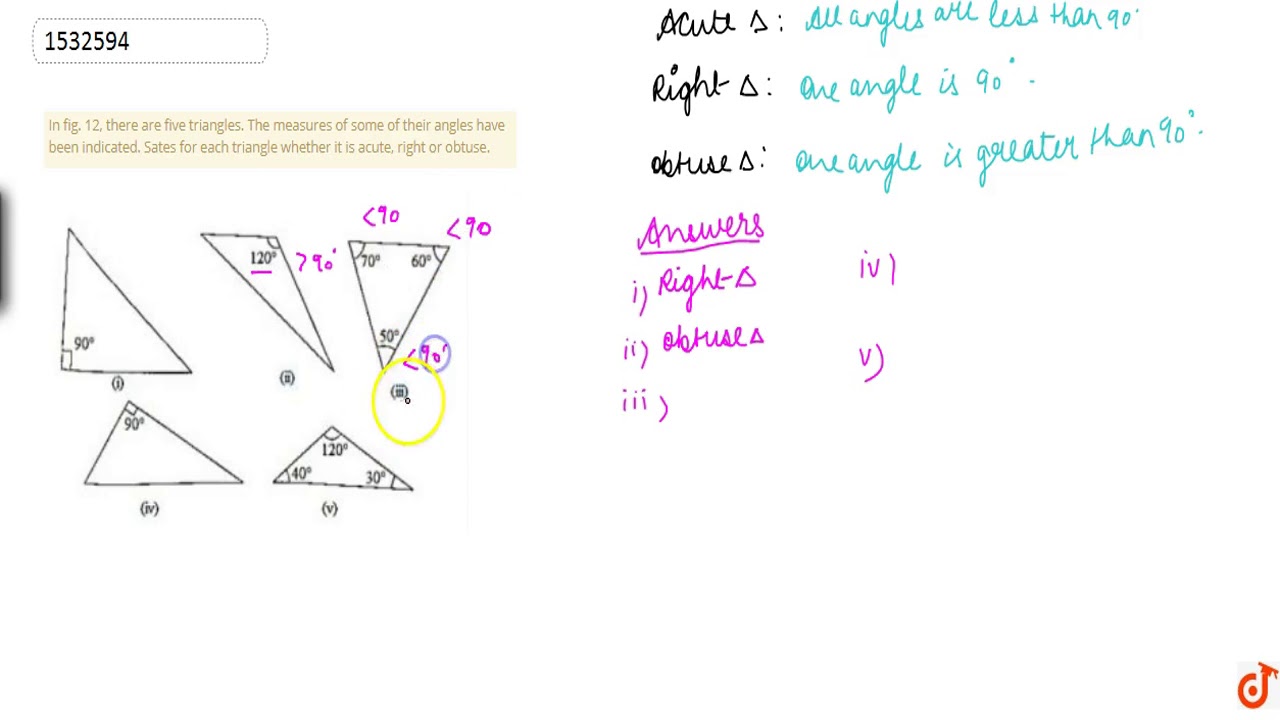 1532594
In fig. 12, there are five triangles. The measures of some of their angles have
been indicated. Sates for each triangle whether it is acute, right or obtuse.
Acute Δ: All angles are less than 90°
Right Δ: One angle is 90°.
Obtuse Δ: One angle is greater than 90°.
<90
<90
120°
>90°
70°
60°
90°
50°
<90°
(i)
(ii)
(iii)
90°
120°
40°
30°
(iv)
(v)
Answers
i) Right Δ
ii) Obtuse Δ
iii)
iv)
v)